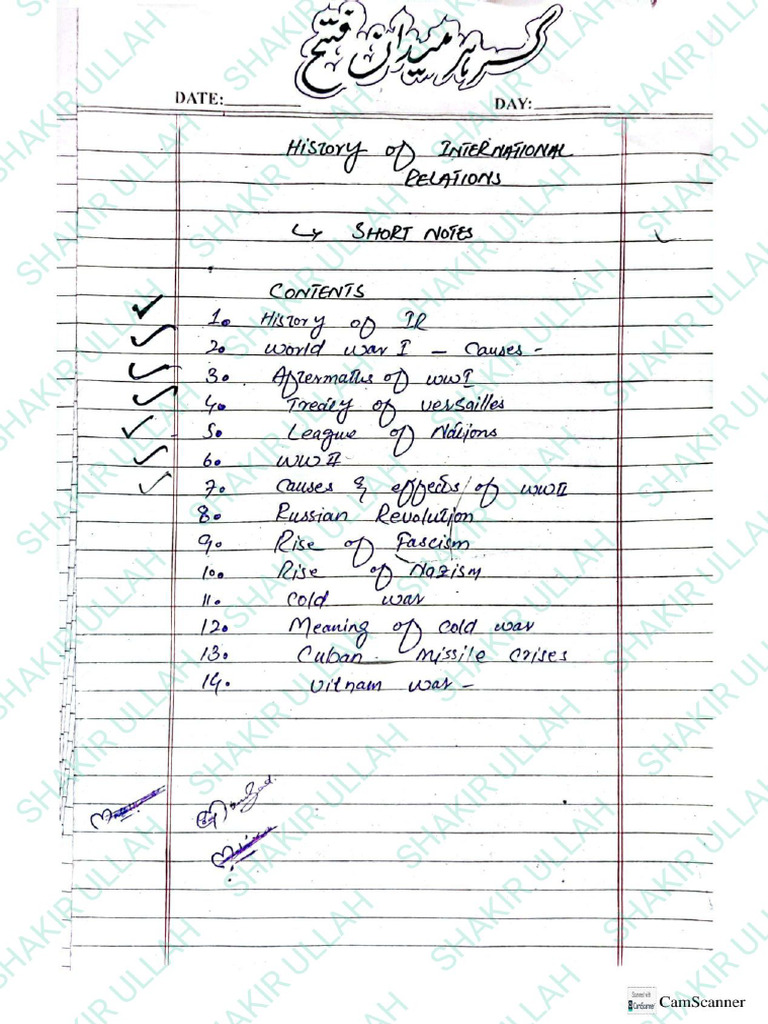 کر ہر میدان فتح
DATE:__________ DAY:__________
History of INTERNATIONAL
RELATIONS
↳ SHORT NOTES
CONTENTS
1. History of IR
2. World war I – Causes -
3. Aftermaths of WWI
4. Treaty of versailles
5. League of Nations
6. WWII
7. Causes & effects of WWII
8. Russian Revolution
9. Rise of Fascism
10. Rise of Nazism
11. Cold war
12. Meaning of Cold war
13. Cuban missile crises
14. Vitnam war –
SHAKIR ULLAH
Scanned with
CamScanner
CamScanner